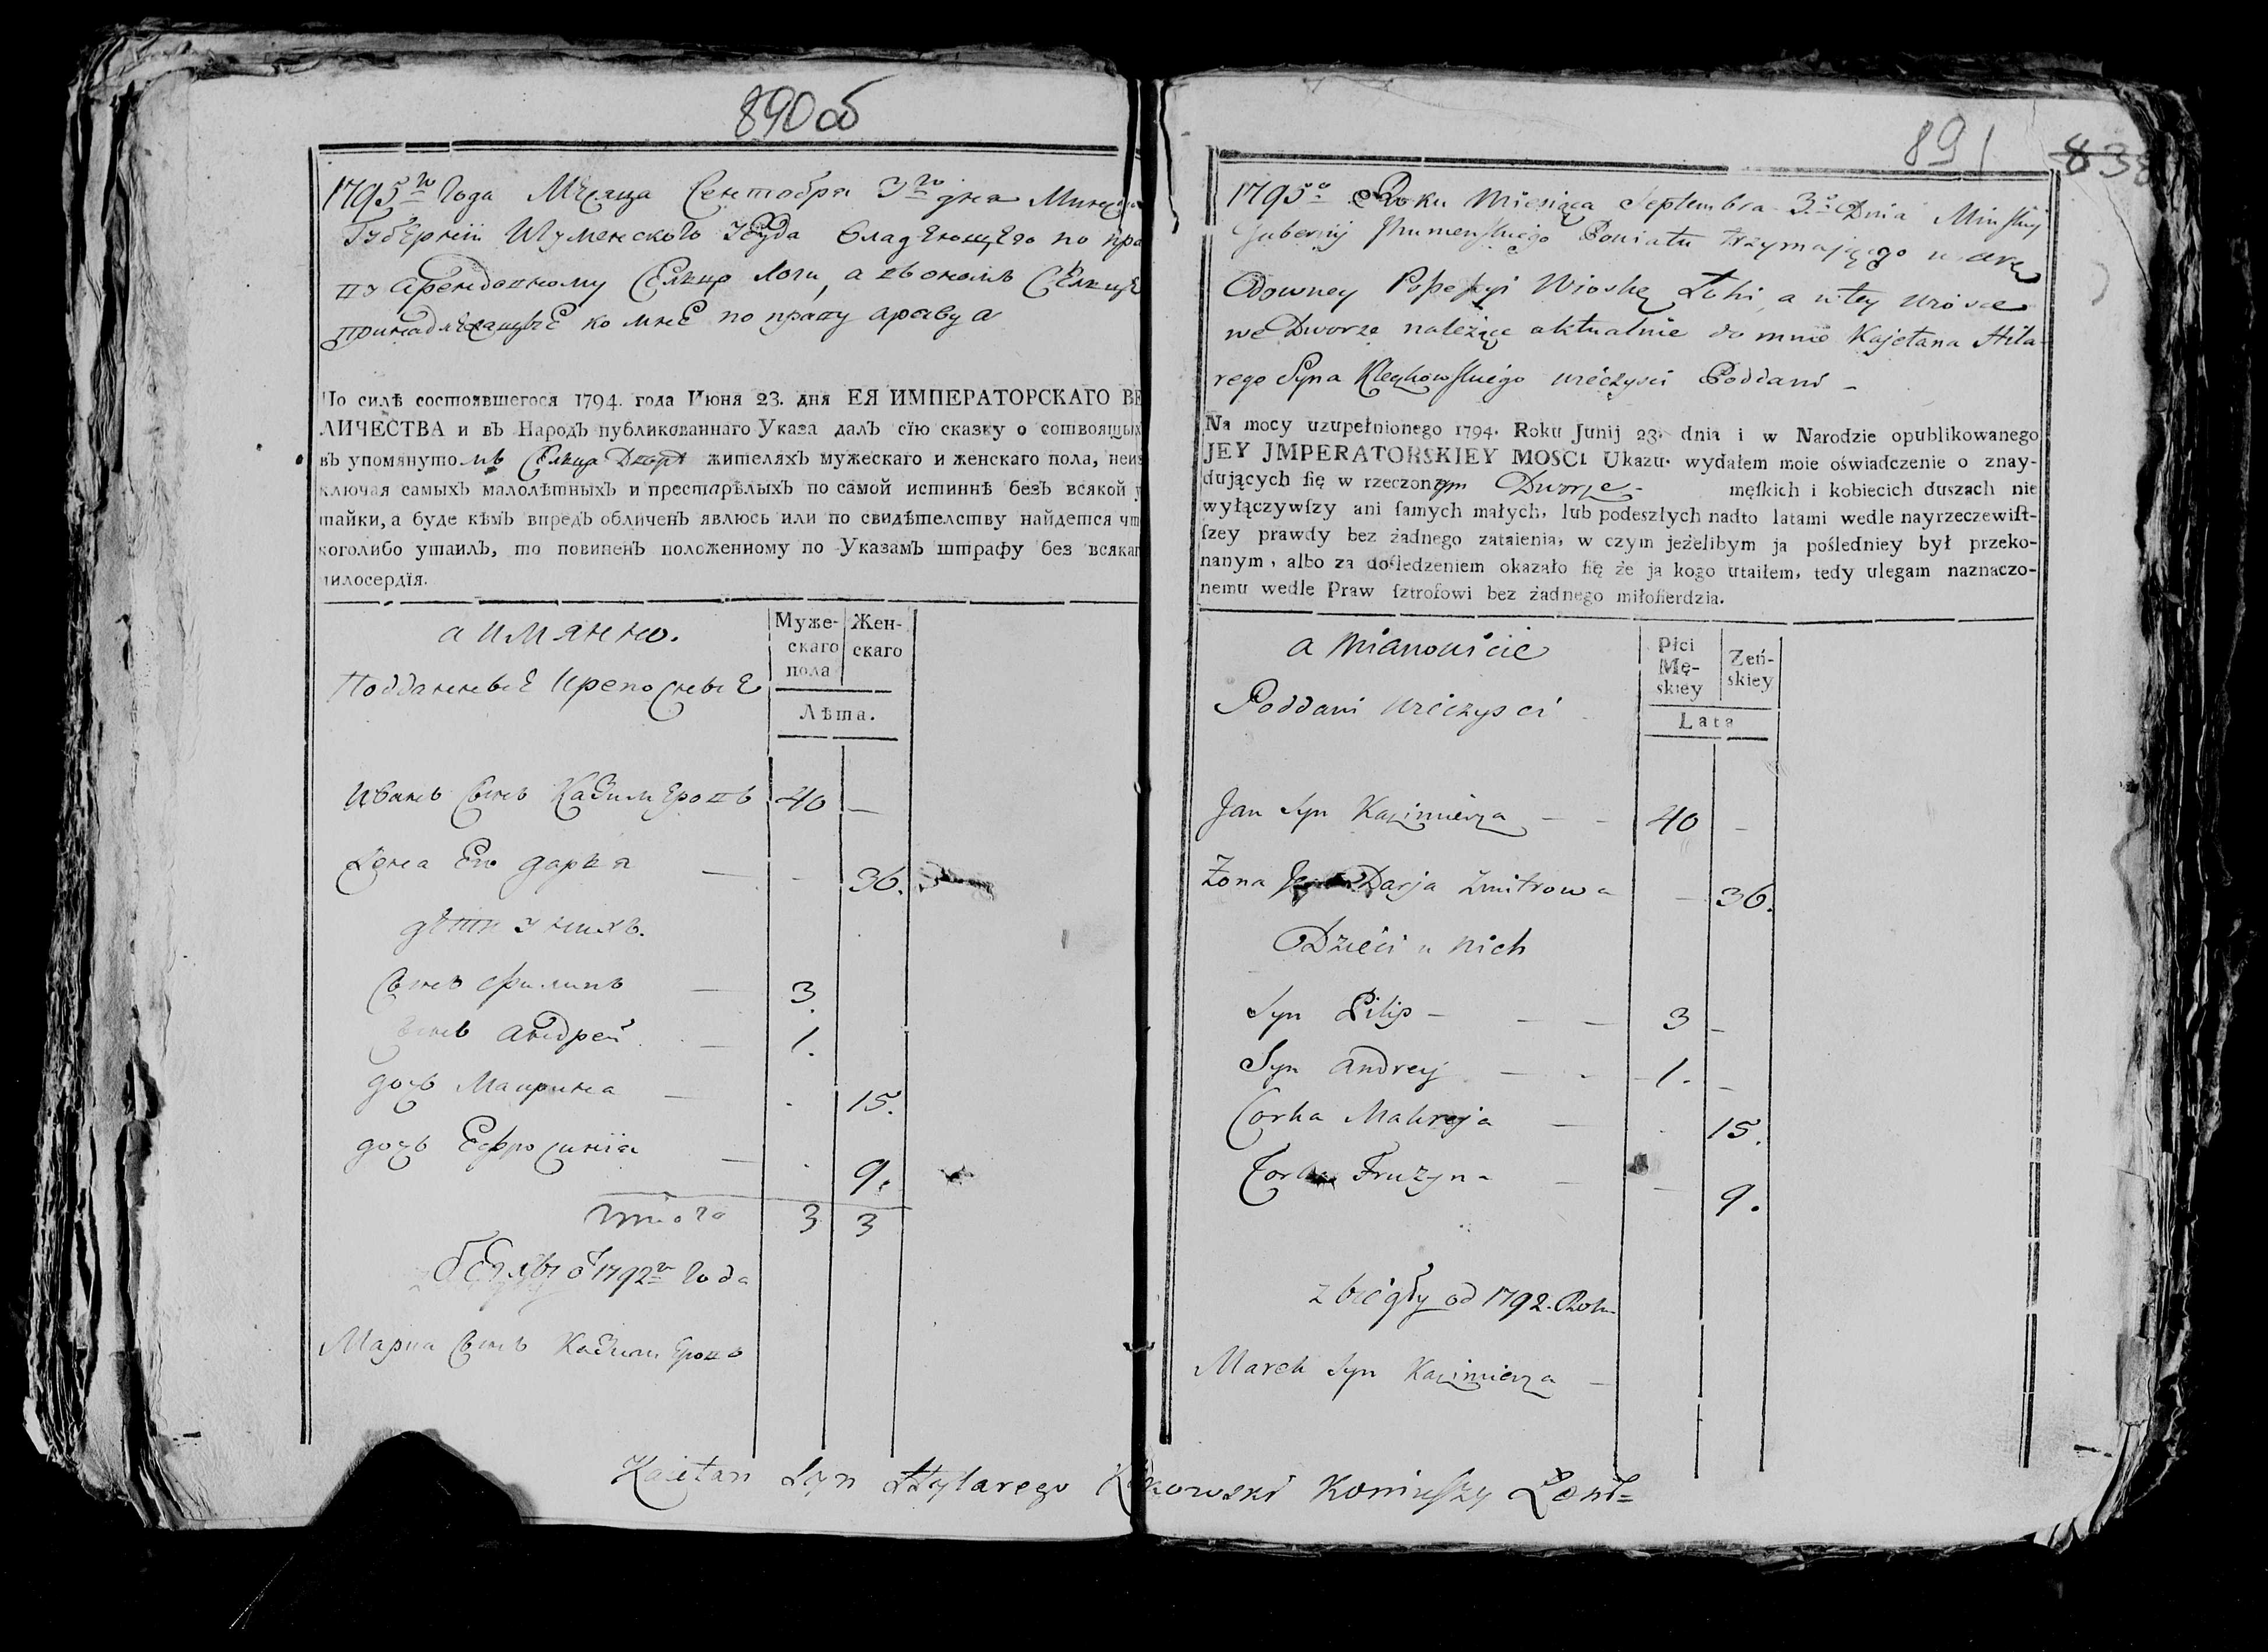 890 об
1795го Года Мѣсяца Сентобря 3го дня
Губѣрнiи Шуменского Уѣзда владѣющего по пра
ву арендовному Селцо Логи, а въ ономъ Селцѣ
принадлежащые ко мнѣ по праву
По силѣ состоявшегося 1794. года Июня 23. дня ЕЯ ИМПЕРАТОРСКАГО ВЕ
ЛИЧЕСТВА и въ Народъ публикованнаго Указа далъ сїю сказку о состоящих
въ упомянутомъ Селца Дворѣ жителяхъ мужескаго и женскаго пола, неиз
ключая самыхъ малолѣтныхъ и престарѣлыхъ по самой истиннѣ безъ всякой у
тайки, а буде кѣмъ впредъ обличенъ явлюсь или по свидѣтелству найдется чт
коголибо утаилъ, то повиненъ положенному по Указамъ штрафу без всякаг
милосердїя.
а имянно.
Муже-
скаго
пола
Жен-
скаго
Лѣта.
Подданные Крепосные
Иванъ Сынъ Казимеровъ 40 —
Жена Его Дарья — - 36.
дѣти у нихъ.
Сынъ Филипъ — 3.
Сынъ Андрей — 1.
дочь Маврина — - 15.
дочь Ефросинiя — - 9.
итого 3 3
беглы от 1792го Года
Марка Сынъ Казимеровъ
891
838
1795o Roku Miesiąca Septembra 3o Dnia Minskiy
Gubernij Jhumenskiego Powiatu trzymającego w are
Odowney Possesyi Wioskę Łohi, a w tey wiosce
we Dworze należące aktualnie do mnie Kajetana Hila-
rego Syna wieczysci Poddani -
Na mocy uzupełnionego 1794. Roku Junij 23. dnia i w Narodzie opublikowanego
JEY JMPERATORSKIEY MOSCI Ukazu. wydałem moie oświadczenie o znay-
duiących ſię w rzeczonym Dworze - męſkich i kobiecich duszach nie
wyłączywſzy ani ſamych małych, lub podeszłych nadto latami wedle nayrzeczewiſt-
ſzey prawdy bez żadnego zataienia, w czym jeżelibym ja poſledniey był przeko-
nanym, albo za doſledzeniem okazało ſię że ja kogo utaiłem, tedy ulegam naznaczo-
nemu wedle Praw ſztrofowi bez żadnego miłoſierdzia.
a mianowicie
Płci
Mę-
skiey
Zeń-
skiey
Lata
Poddani wieczysci
Jan Syn Kazimierza — - 40 -
Żona Jego Darja Zmitrowa — 36.
Dzieci u nich
Syn Pilip - — — 3 -
Syn Andrey — - 1. -
Corka Mahreja — . 15.
Corka Fruzyna — — 9.
zbiegły od 1792. Roku
Marek Syn Kazimierza —
Kaietan Syn Hylarego Koniuszy